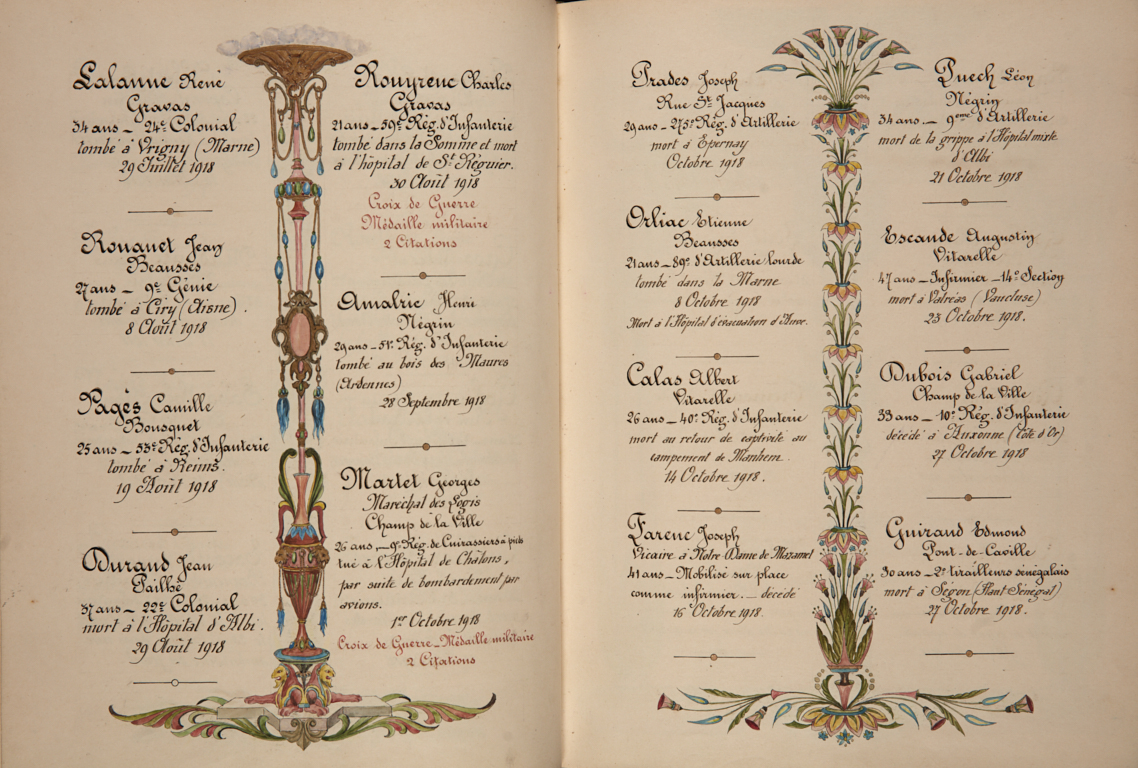 Lalanne René
Gravas
34 ans _ 24e Colonial
tombé à Vrigny (Marne)
29 Juillet 1918
Rouanet Jean
Beausses
27 ans _ 9e Génie
tombé à Ciry (Aisne).
8 Août 1918
Pagès Camille
Bousquet
25 ans _ 53e Rég. d'Infanterie
tombé à Reims.
19 Août 1918
Durand Jean
Pailhé
37 ans _ 22e Colonial
mort à l'Hôpital d'Albi.
29 Août 1918
Rouyrenc Charles
Gravas
21 ans _ 59e Rég. d'Infanterie
tombé dans la Somme et mort
à l'hôpital de St Réquier.
30 Août 1918
Croix de Guerre
Médaille militaire
2 Citations
Amalric Henri
Négrin
29 ans _ 51e Rég. d'Infanterie
tombé au bois des Maures
(Ardennes)
28 Septembre 1918
Martet Georges
Maréchal des Logis
Champ de la Ville
26 ans _ 9e Rég. de Cuirassiers à pieds
tué à l'Hôpital de Châlons,
par suite de bombardement par
avions.
1er Octobre 1918
Croix de Guerre _ Médaille militaire
2 Citations
Prades Joseph
Rue St Jacques
29 ans _ 275e Rég. d'Artillerie
mort à Epernay
Octobre 1918
Orliac Etienne
Beausses
21 ans _ 89e d'Artillerie lourde
tombé dans la Marne
8 Octobre 1918
Mort à l'Hôpital d'évacuation d'Auve.
Calas Albert
Vitarelle
26 ans _ 40e Rég. d'Infanterie
mort au retour de captivité au
campement de Manhem.
14 Octobre 1918.
Farenc Joseph
Vicaire à Notre-Dame de Mazamet
41 ans _ Mobilisé sur place
comme infirmier. _ décédé
16 Octobre 1918.
Puech Léon
Négrin
34 ans. _ 9eme d'Artillerie
mort de la grippe à l'Hôpital mixte
d'Albi
21 Octobre 1918
Escande Augustin
Vitarelle
47 ans _ Infirmier _ 14e Section
mort à Valréas (Vaucluse)
23 Octobre 1918.
Dubois Gabriel
Champ de la Ville
33 ans _ 10e Rég. d'Infanterie
décédé à Auxonne (Côte d'Or)
27 Octobre 1918.
Guiraud Edmond
Pont-de-Caville
30 ans _ 2e tirailleurs sénégalais
mort à Ségou (Haut Sénégal)
27 Octobre 1918.